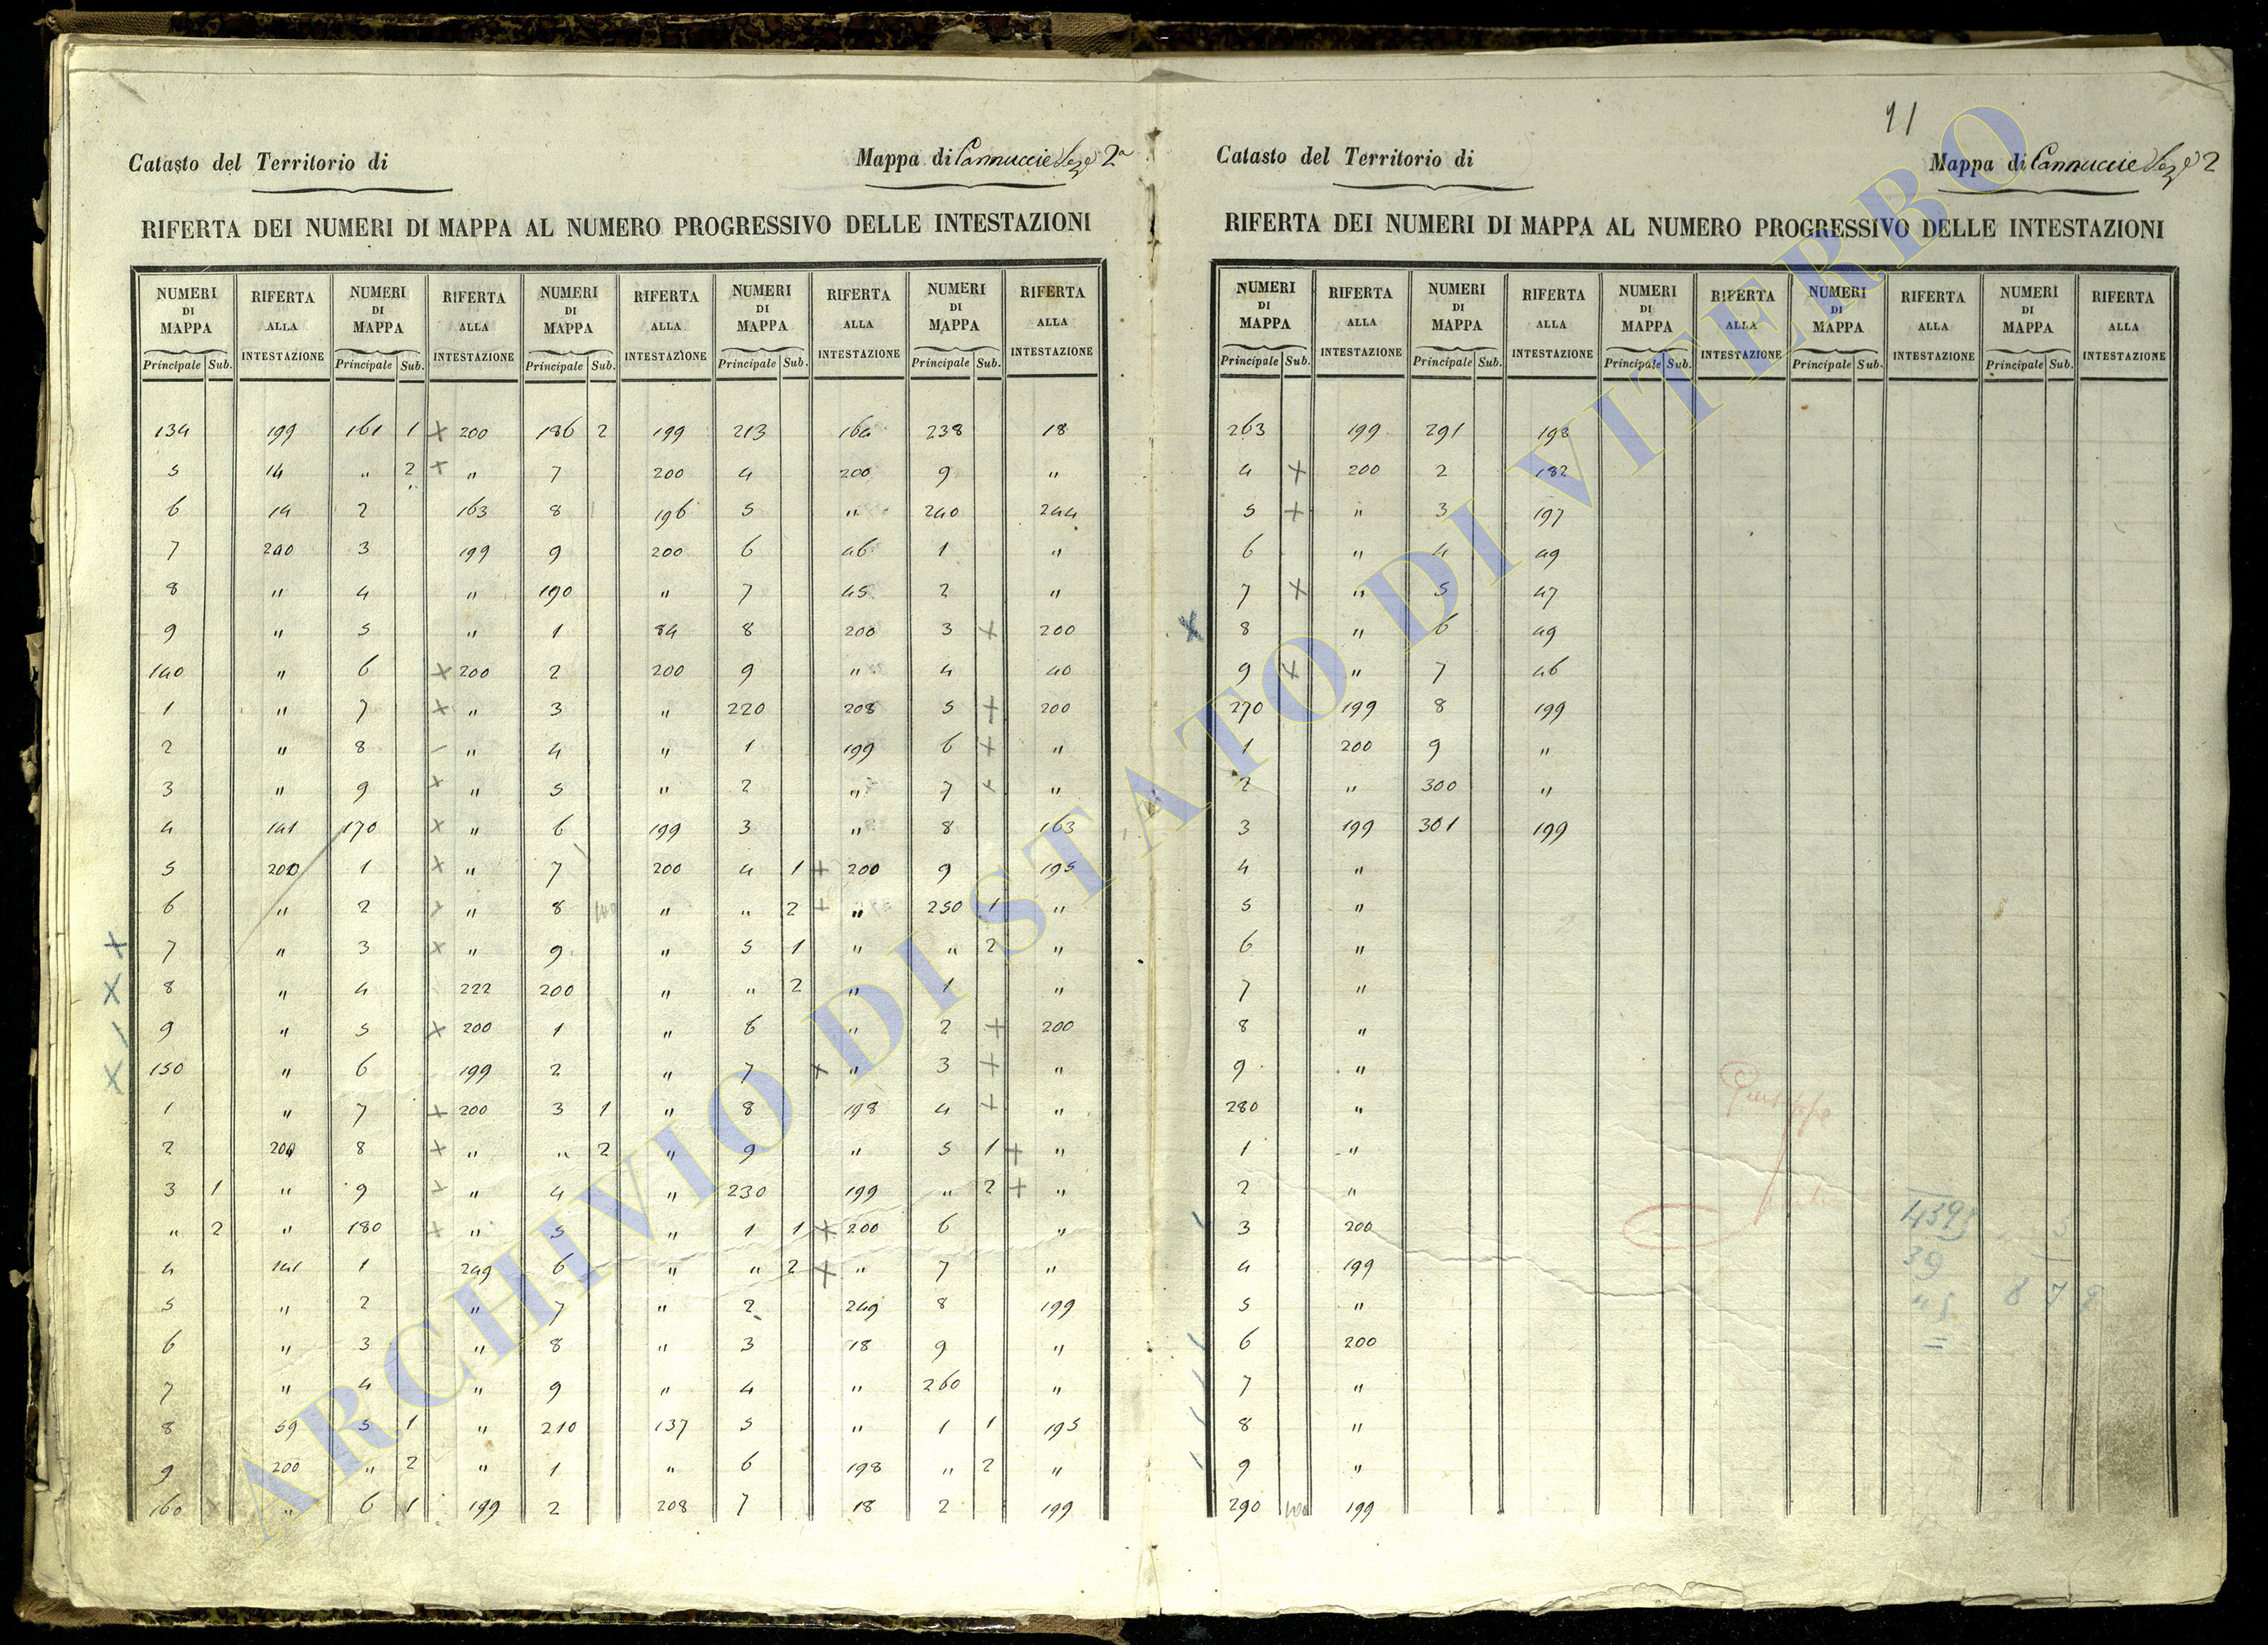 11
Catasto del Territorio di Mappa di Cannuccie Sez.e 2a
RIFERTA DEI NUMERI DI MAPPA AL NUMERO PROGRESSIVO DELLE INTESTAZIONI
NUMERI RIFERTA NUMERI RIFERTA NUMERI RIFERTA NUMERI RIFERTA NUMERI RIFERTA
DI ALLA DI ALLA DI ALLA DI ALLA DI ALLA
MAPPA INTESTAZIONE MAPPA INTESTAZIONE MAPPA INTESTAZIONE MAPPA INTESTAZIONE MAPPA INTESTAZIONE
Principale Sub. Principale Sub. Principale Sub. Principale Sub. Principale Sub.
134 199 161 1 x 200 186 2 199 213 164 238 18
5 14 " 2 x " 7 200 4 200 9 "
6 14 2 163 8 196 5 " 240 244
7 200 3 199 9 200 6 46 1 "
8 " 4 " 190 " 7 45 2 "
9 " 5 " 1 84 8 200 3 + 200
140 " 6 x 200 2 200 9 " 4 40
1 " 7 x " 3 " 220 208 5 + 200
2 " 8 - " 4 " 1 199 6 + "
3 " 9 x " 5 " 2 " 7 + "
4 141 170 x " 6 199 3 " 8 163
5 200 1 x " 7 200 4 1 + 200 9 195
6 " 2 x " 8 " " 2 + " 250 1 "
x 7 " 3 x " 9 " 5 1 " " 2 "
x 8 " 4 222 200 " " 2 " 1 "
/ 9 " 5 x 200 1 " 6 " 2 + 200
x 150 " 6 199 2 " 7 x " 3 + "
1 " 7 + 200 3 1 " 8 198 4 + "
2 200 8 + " " 2 " 9 " 5 1 + "
3 1 " 9 + " 4 " 230 199 " 2 + "
" 2 " 180 + " 5 " 1 1 x 200 6 "
4 141 1 249 6 " " 2 x " 7 "
5 " 2 " 7 " 2 249 8 199
6 " 3 " 8 " 3 18 9 "
7 " 4 " 9 " 4 " 260 "
8 59 5 1 " 210 137 5 " 1 1 195
9 200 " 2 " 1 " 6 198 " 2 "
160 " 6 1 199 2 208 7 18 2 199
Catasto del Territorio di Mappa di Cannuccie Sez.e 2
RIFERTA DEI NUMERI DI MAPPA AL NUMERO PROGRESSIVO DELLE INTESTAZIONI
NUMERI RIFERTA NUMERI RIFERTA NUMERI RIFERTA NUMERI RIFERTA NUMERI RIFERTA
DI ALLA DI ALLA DI ALLA DI ALLA DI ALLA
MAPPA INTESTAZIONE MAPPA INTESTAZIONE MAPPA INTESTAZIONE MAPPA INTESTAZIONE MAPPA INTESTAZIONE
Principale Sub. Principale Sub. Principale Sub. Principale Sub. Principale Sub.
263 199 291 198
4 + 200 2 182
5 + " 3 197
6 " 4 49
7 x " 5 47
x 8 " 6 49
9 x " 7 46
270 199 8 199
1 200 9 "
2 " 300 "
3 199 301 199
4 "
5 "
6 "
7 "
8 "
9 "
280 "
1 "
2 "
3 200
4 199
5 "
6 200
7 "
8 "
9 "
290 199
Giuseppe
39
45
6 7 8
ARCHIVIO DI STATO DI VITERBO